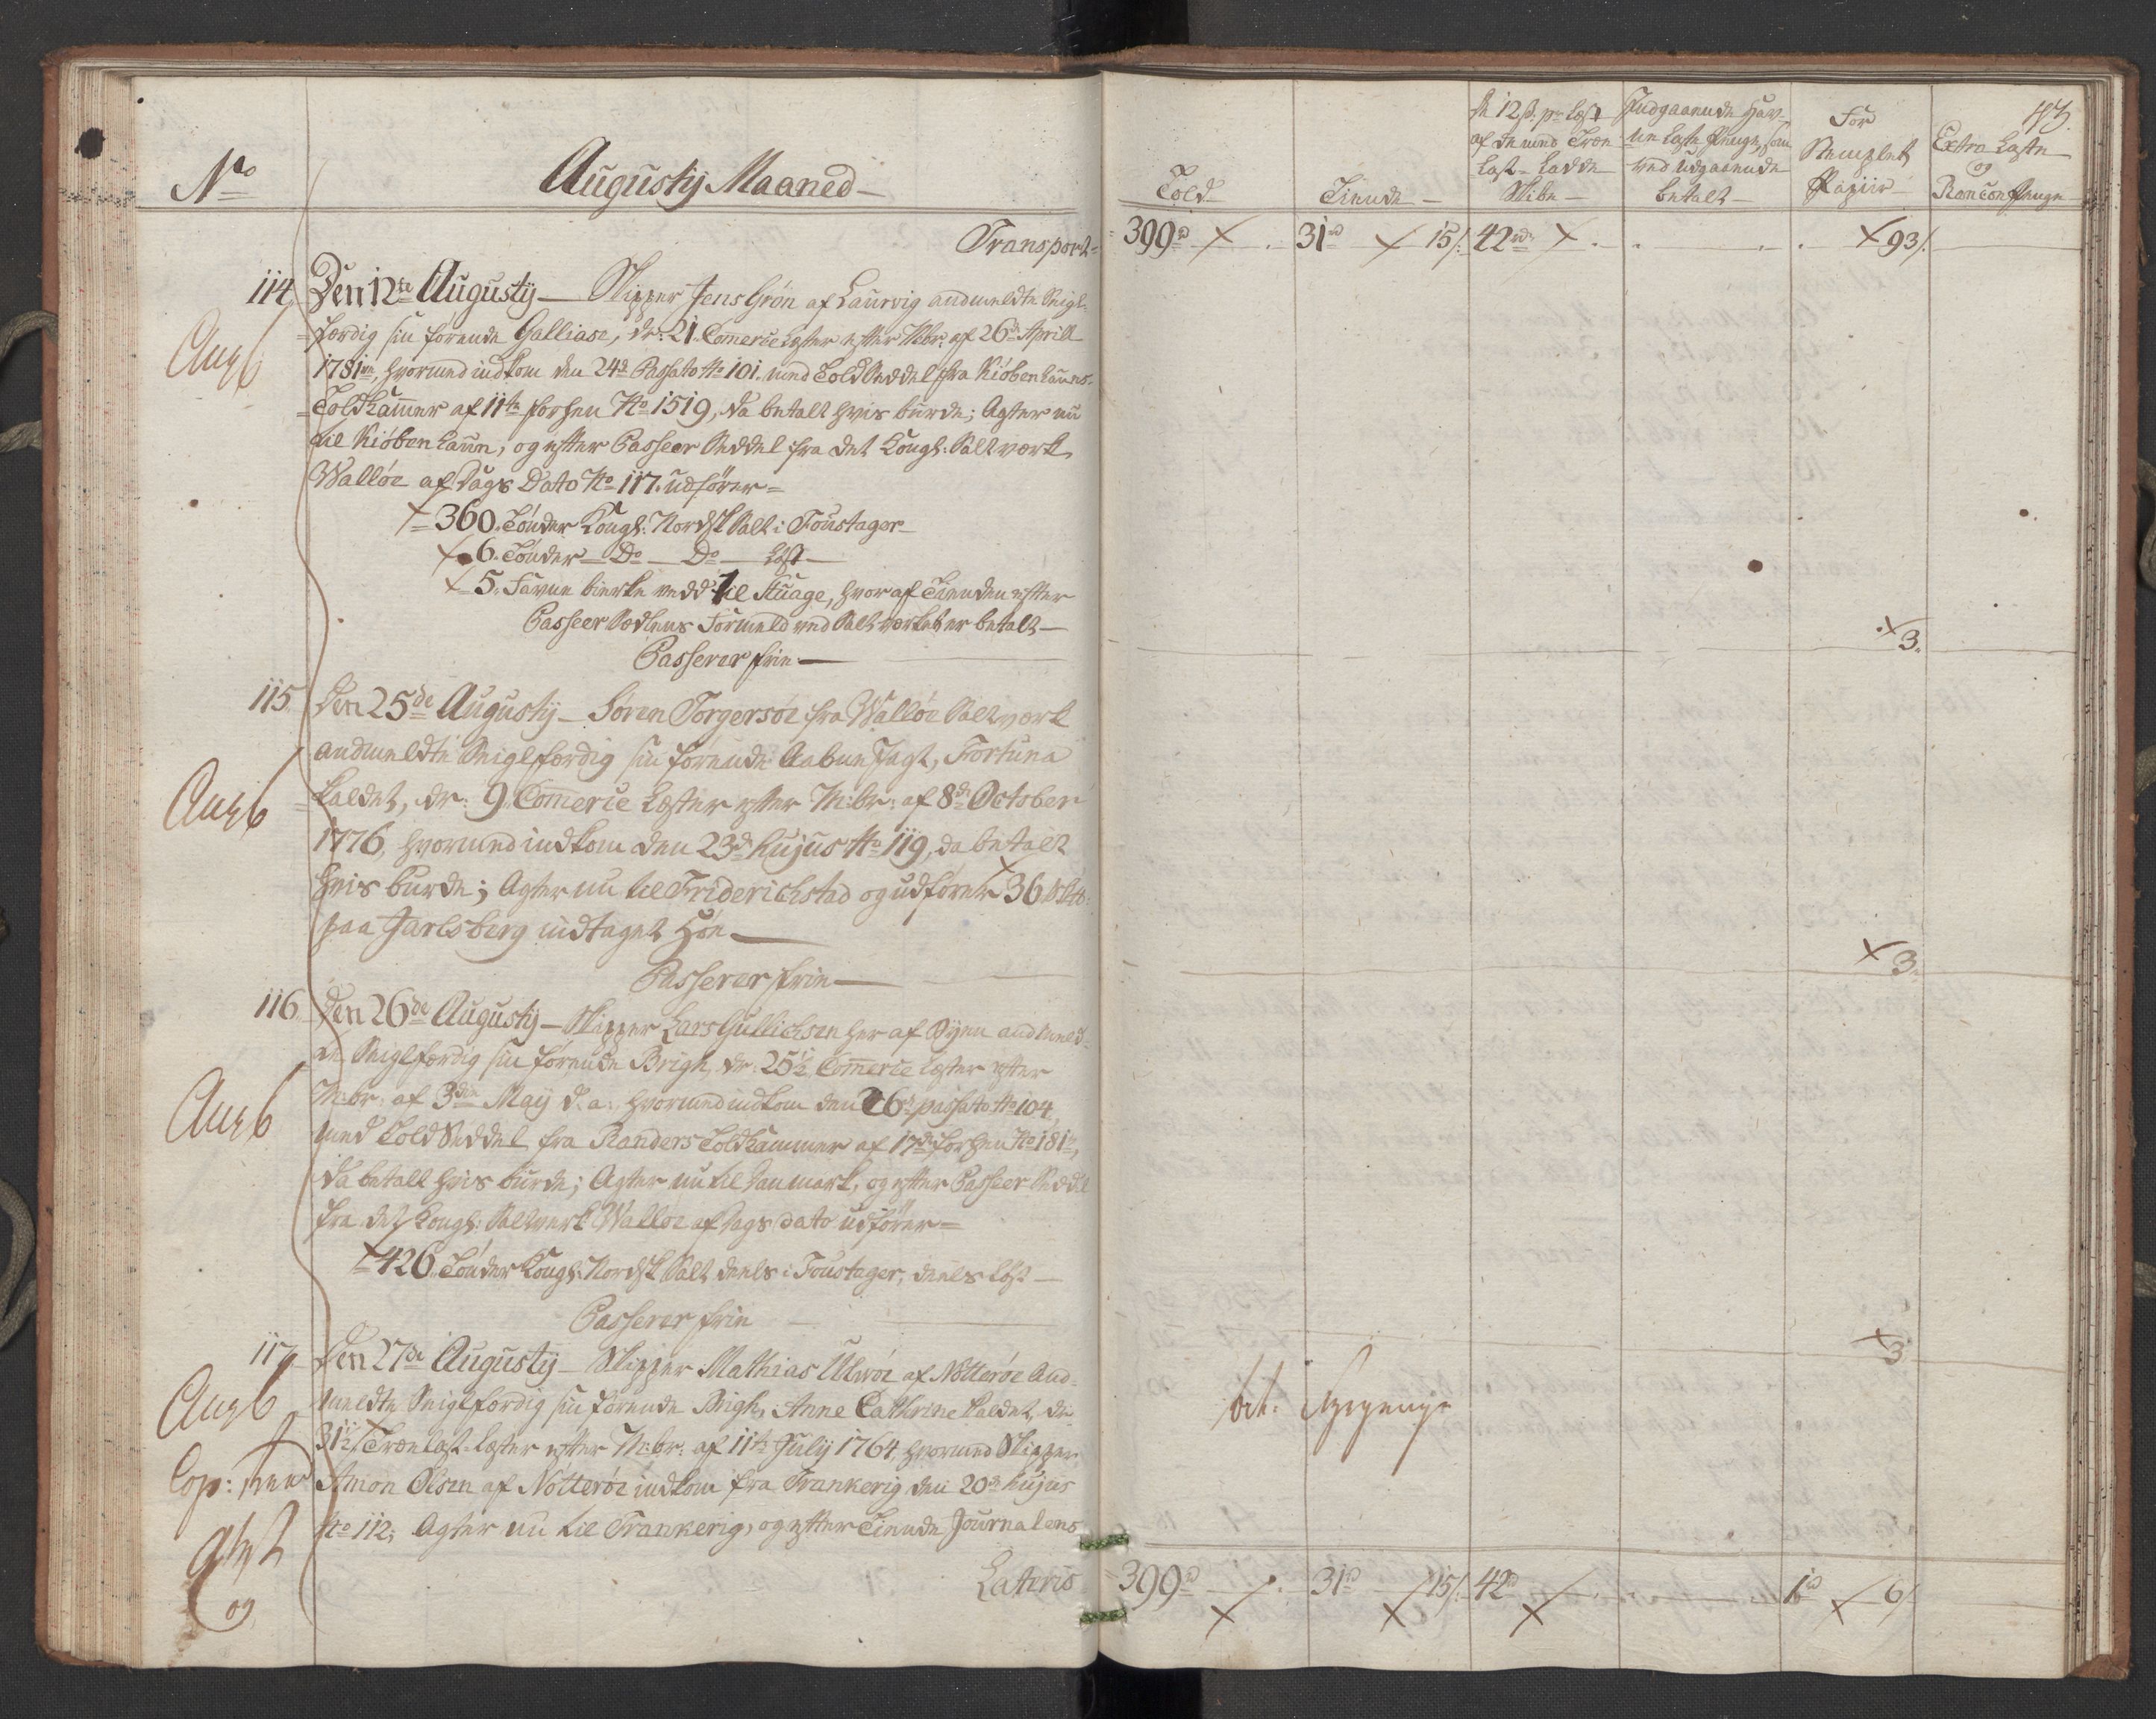 No
Augustij Maaned
Transport
114. Den 12te Augustij – Skipper Jens Grøn af Laurvig andmeldte Seigl-
færdig sin førende Galliase, dr: 21 Comerce Læster efter Mbr: af 26de Aprill
1781, hvormed indkom den 24de Passato No 101. med Told Seddel fra Kiøbenhauns
Toldkamer af 11te forhen No 1519, da betalt hvis burde; Agter nu
til Kiøbenhaun, og efter Passeer Seddel fra det Kongl: Saltværk
Walløe af Dags Dato No 117. udfører =
360. Tønder Kongl: Nordsk Salt i Foustager
6. Tønder – Do – Do – Løst –
5. Favne birke vedd til Stuage, hvoraf Tienden efter
Passeer Sedlens Formeld ved Saltværket er betalt –
Passerer frie –
115. Den 25de Augustij – Søren Torgersøe fra Walløe Saltværk
andmeldte Seiglfærdig sin førende Aabne Jagt, Fortuna
kaldet, dr: 9. Comerce Læster efter M:br: af 8de October
1776, hvormed indkom den 23de hujus No 119, da betalt
hvis burde; Agter nu til Friderichstad og udfører 36
paa Jarlsberg indtaget Høe –
Passerer frie –
116. Den 26de Augustij – Skipper Lars Gullichsen her af Byen andmeld-
te Seiglfærdig sin førende Brigh, dr. 25½ Comerce Læster efter
M:br: af 3die Maij d: a:, hvormed indkom den 26de passato No 104,
med Told Seddel fra Randers Toldkammer af 17de forhen No 181,
da betalt hvis burde; Agter nu til Danmark, og efter Passeer Seddel
fra det Kongl: Saltverk Walløe af Dags dato udfører =
426. Tønder Kongl: Nordsk Salt deels i Foustager, deels løst –
Passerer frie
117. Den 27de Augustij – Skipper Mathias Ulvøe af Nøtterøe And-
meldte Seiglfærdig sin førende Brigh, Anne Cathrine kaldet, dr.
31½ Trælast-Læster efter M:br: af 11te Julij 1764, hvormed Skipper
Simon Olsen af Nøtterøe indkom fra Frankerig den 20de hujus
No 112; Agter nu til Frankerig, og efter Tiende Journalens
Lateris
Cop:
og
43.
Told
Tiende –
De 12 s. pr Læst
af de med Træ
Last-Ladde
Skibe –
Indgaaende Hav-
ne Laste Penge, som
ved udgaaende
betalt –
For
Stemplet
Papiir
Extra Laste
og
Rancon Penge
399 rd
31 rd 15 s.
42 rd
93 s.
3.
3.
3
399 rd
31 rd 15 s.
42 rd
1 rd 6 s.